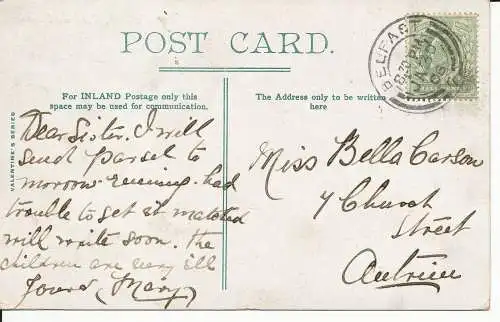 POST CARD.
For INLAND Postage only this
space may be used for communication.
The Address only to be written
here
VALENTINE'S SERIES
BELFAST
Dear Sister. I will
send parsel to
morrow evening. had
trouble to get it matched
will write soon. the
children are very ill
Yours (Mary)
Miss Bella Carson
7 Church
Street
Antrim